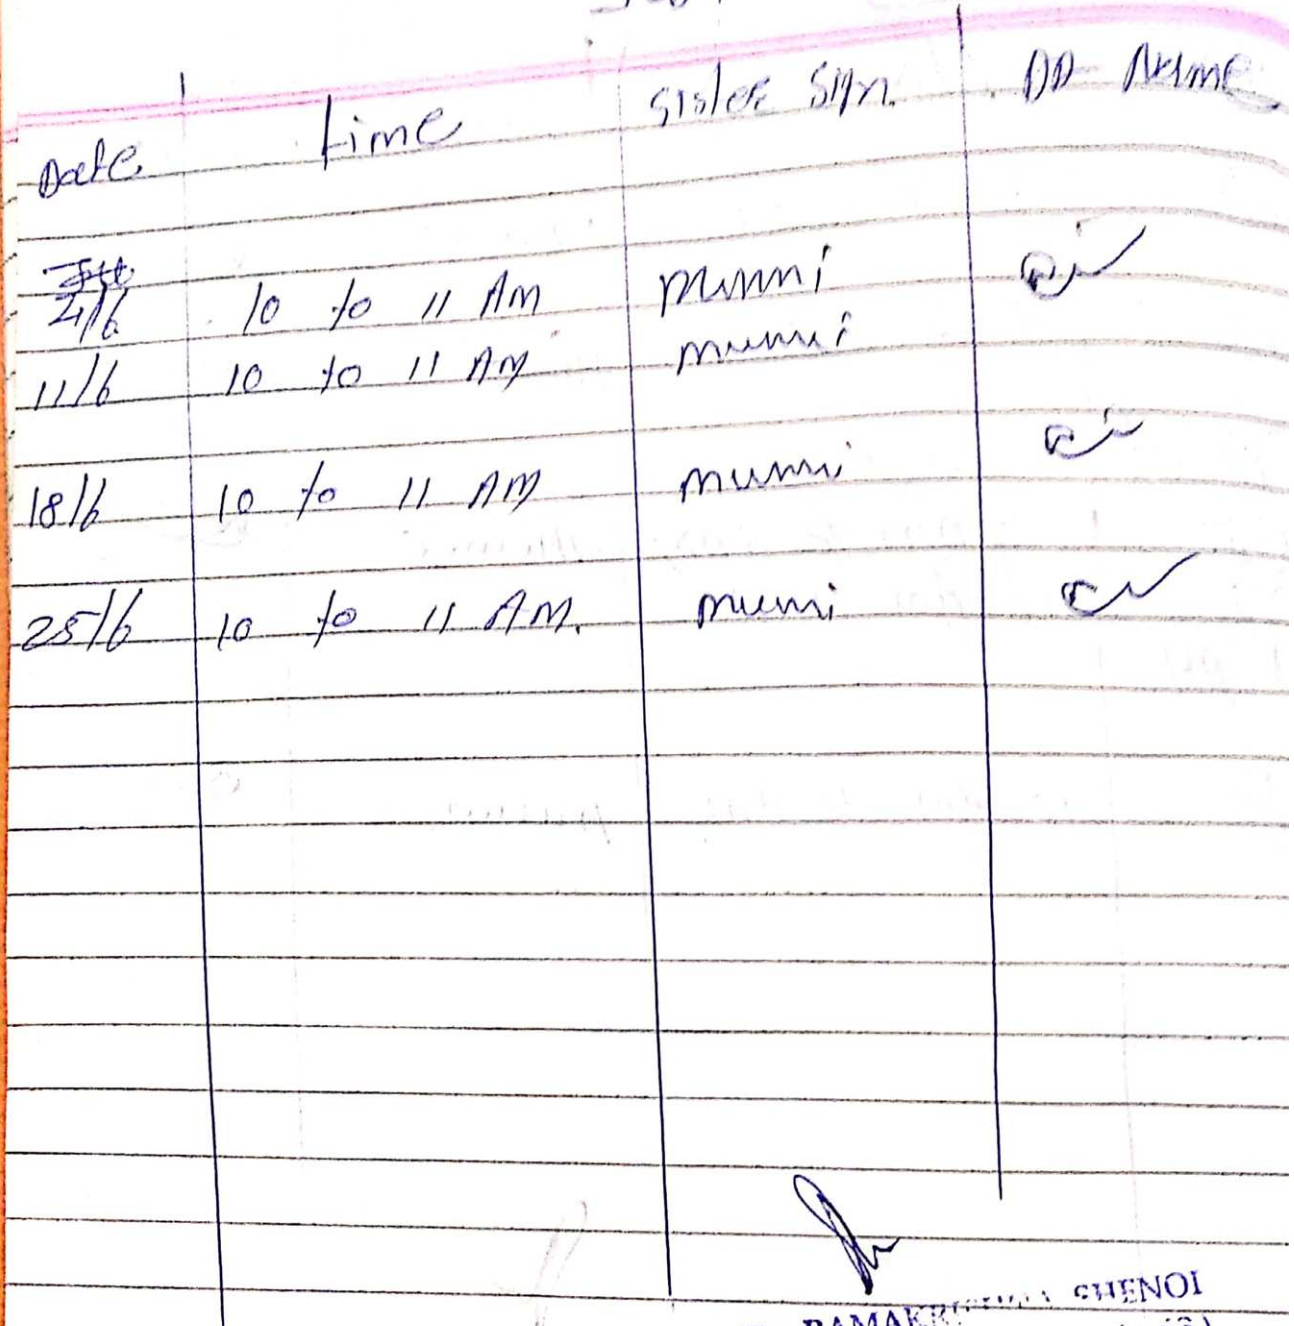 Date. time sister sign. DD Name
4/6 10 to 11 AM munni
11/6 10 to 11 AM munni
18/6 10 to 11 AM munni
25/6 10 to 11 AM. munni
SHENOI